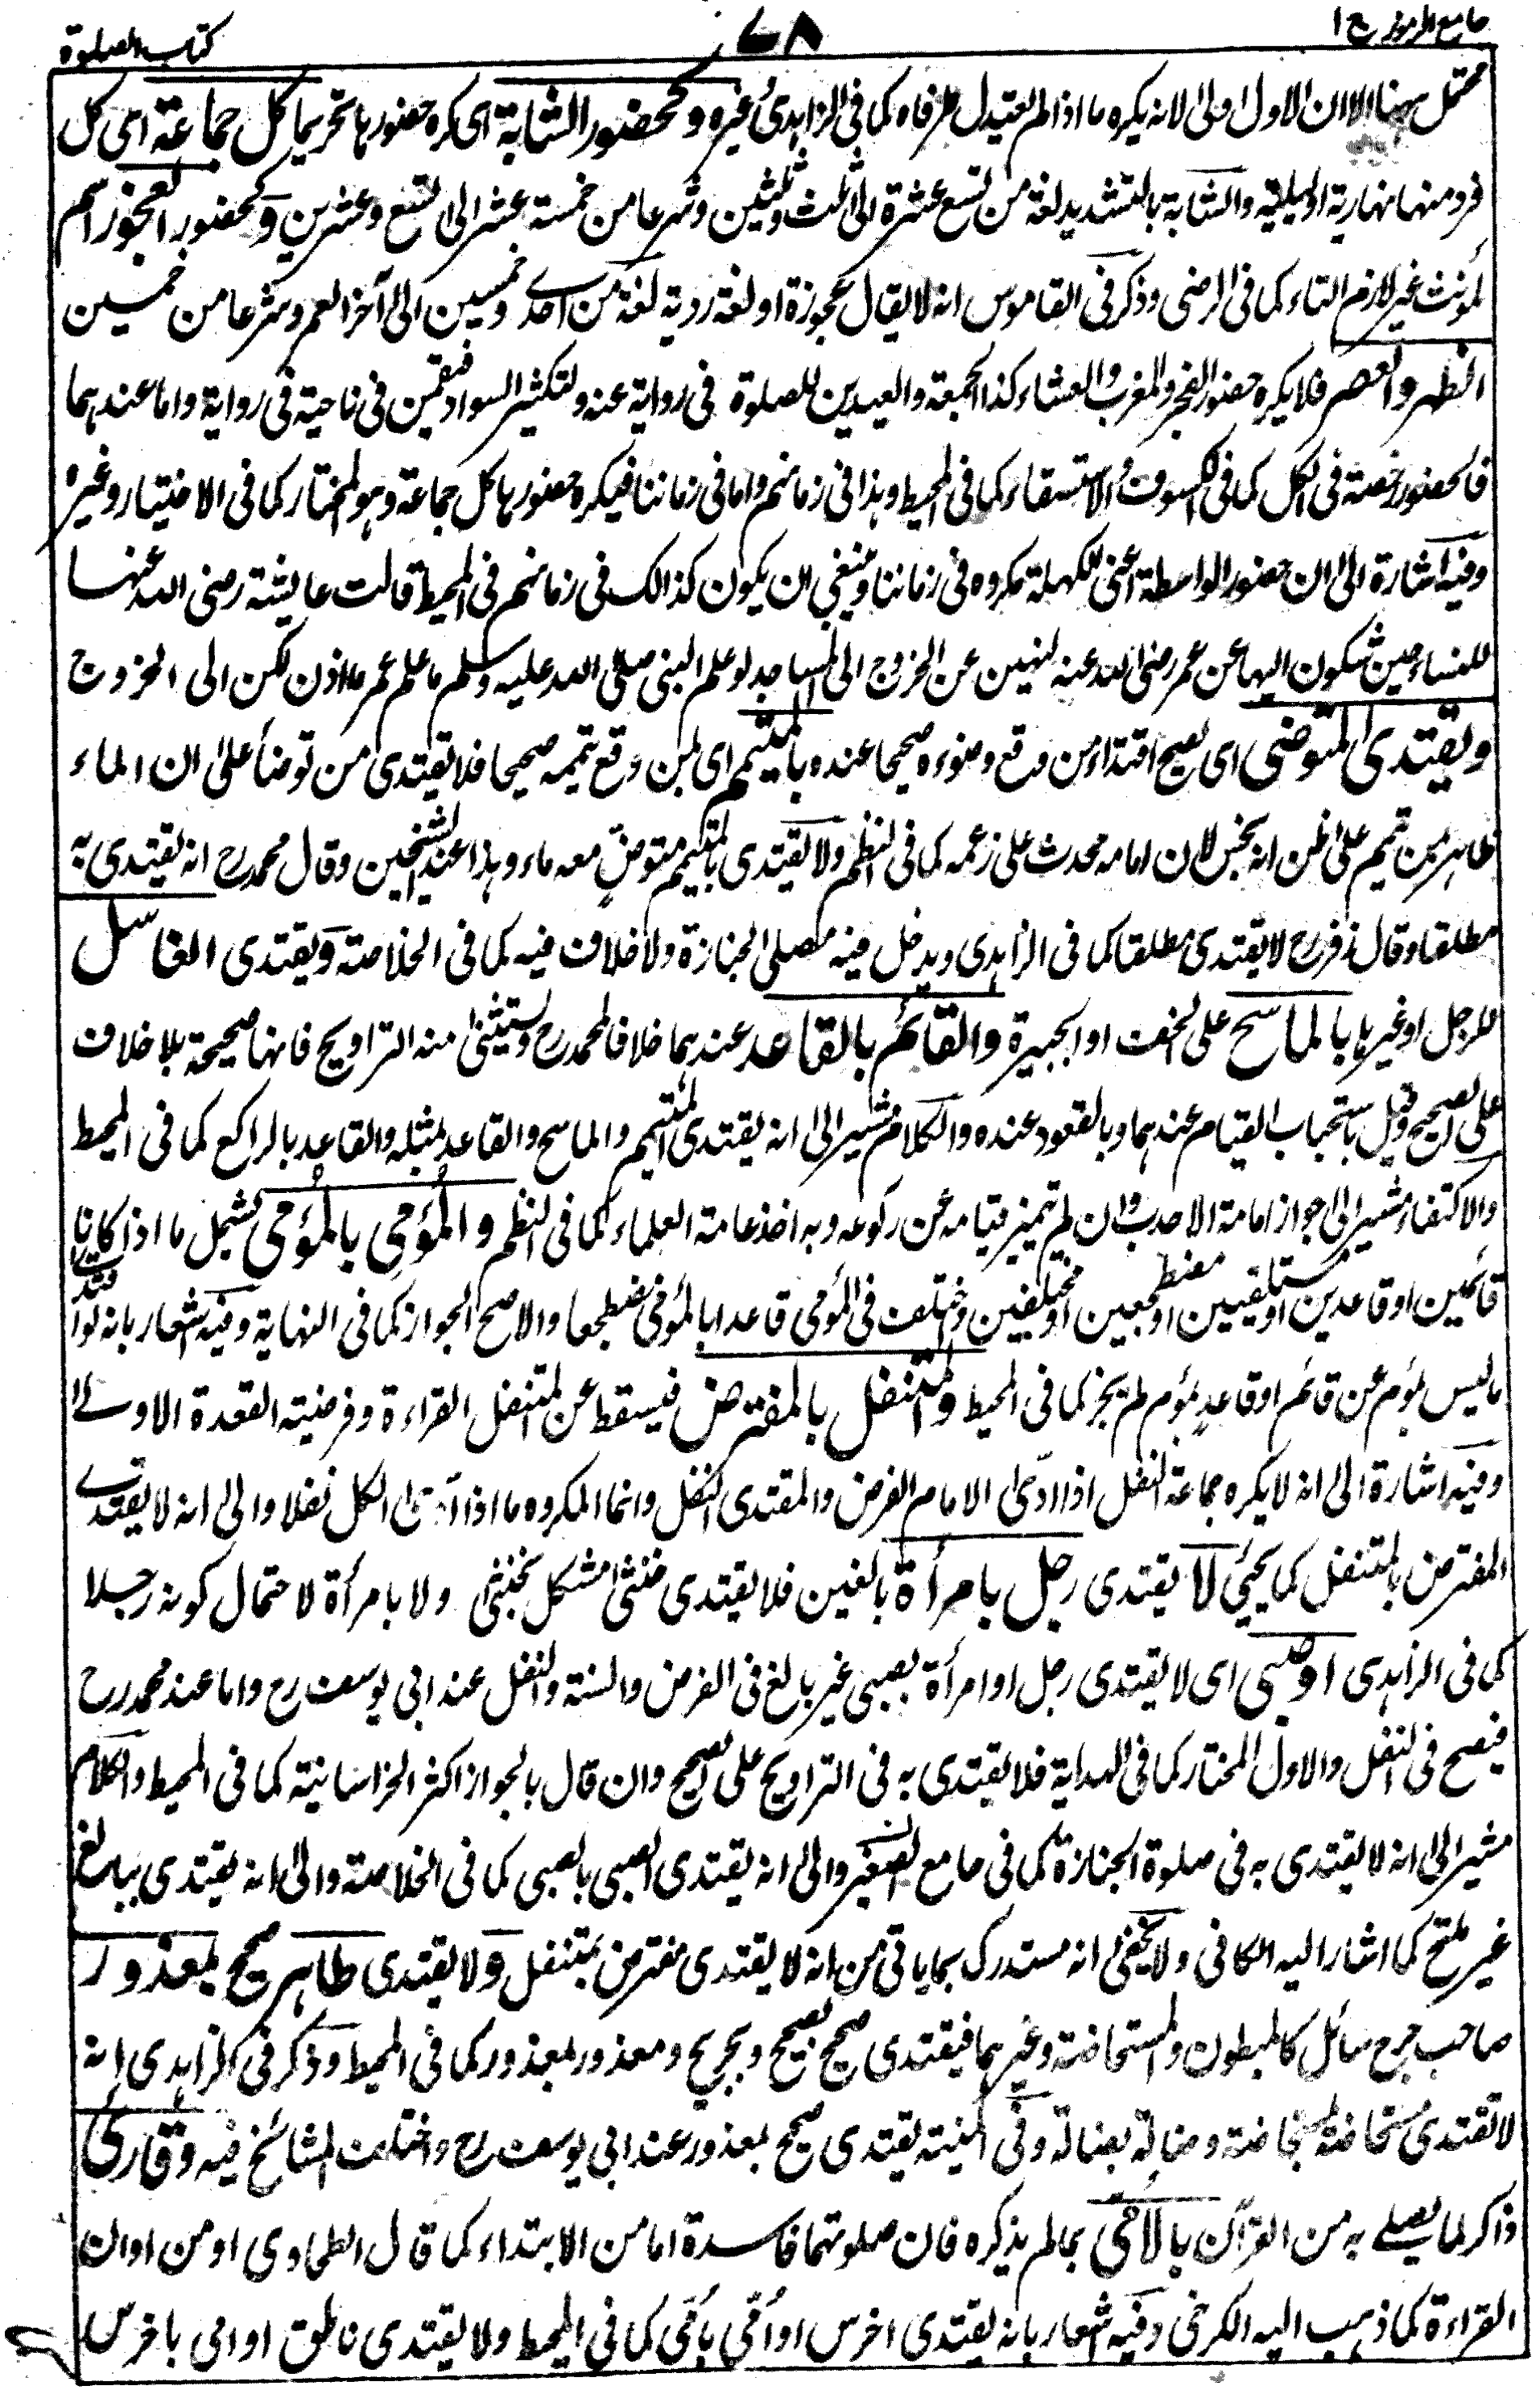 جامع الرموز ج ١
٧٨
كتاب الصلوة
محتمل ههنا الا ان الاول اولى لانه يكره ما اذا لم يعتدل طرفاه كما فى الزاهدى وغيره وكحضور الشابة اى كره حضورها تحريما كل جماعة اى كل
فرد منها نهارية او ليلية والشابة بالتشديد لغة من تسع عشرة الى ثلث وثلثين وشرعا من خمسة عشر الى تسع وعشرين وكحضور العجوز اسم
لمؤنث غير لازم التاء كما فى الرضى وذكر فى القاموس انه لا يقال عجوزة او لغة ردية لغة من احدى وخمسين الى آخر العمر وشرعا من خمسين
الظهر والعصر فلا يكره حضور الفجر والمغرب والعشاء وكذا الجمعة والعيدين للصلوة فى رواية عنه ولتكثير السواد فيقمن فى ناحية فى رواية واما عندهما
فالحضور رخصة فى الكل كما فى الكسوف والاستسقاء كما فى المحيط وهذا فى زمانهم واما فى زماننا فيكره حضورها كل جماعة وهو المختار كما فى الاختيار وغيره
وفيه اشارة الى ان حضور الواسطة اعنى الكهلة مكروه فى زماننا وينبغى ان يكون كذالك فى زمانهم فى المحيط قالت عايشة رضى الله عنها
للنساء حين شكون اليها عن عمر رضى الله عنه لنهيهن عن الخروج الى المساجد لو علم النبى صلى الله عليه وسلم ما علم عمر ما اذن لكن الى الخروج
ويقتدى المتوضى اى يصح اقتداء من وقع وضوءه صحيحا عنده بالمتيمم اى بمن وقع تيممه صحيحا فلا يقتدى من توضأ على ان الماء
طاهر بمن تيمم على ظن انه نجس لان امامه محدث على زعمه كما فى النظم ولا يقتدى بالمتيمم متوض معه ماء وهذا عند الشيخين وقال محمد رح انه يقتدى به
مطلقا وقال زفر رح لا يقتدى مطلقا كما فى الزاهدى ويدخل فيه مصلى الجنازة ولا خلاف فيه كما فى الخلاصة ويقتدى الغاسل
للرجل او غيرها بالماسح على الخف او الجبيرة والقائم بالقاعد عندهما خلافا لمحمد رح ويستثنى منه التراويح فانها صحيحة بلا خلاف
على الصحيح وقيل باستحباب القيام عندهما وبالقعود عنده والكلام مشير الى انه يقتدى المتيمم والماسح والقاعد بمثله والقاعد بالراكع كما فى المحيط
والاكتفاء مشير الى جواز امامة الاحدب وان لم يتميز قيامه عن ركوعه وبه اخذ عامة العلماء كما فى النظم والمؤمى بالمؤمى يشمل ما اذا كانا
قائمين او قاعدين او مستلقيين او مضطجعين او مختلفين واختلف فى المؤمى قاعدا بالمؤمى مضطجعا والاصح الجواز كما فى النهاية وفيه اشعار بانه لو اقتدى
ما ليس بموم عن قائم او قاعد بموم لم يجز كما فى المحيط والمتنفل بالمفترض فيسقط عن المتنفل القراءة وفرضيته القعدة الاولى
وفيه اشارة الى انه لا يكره جماعة النفل اذا ادى الامام الفرض والمقتدى النفل وانما المكروه ما اذا ادى الكل نفلا والى انه لا يقتدى
المفترض بالمتنفل كما يجئ لا يقتدى رجل بامرأة بالغين فلا يقتدى خنثى مشكل بخنثى ولا بامرأة لاحتمال كونه رجلا
كما فى الزاهدى او صبى اى لا يقتدى رجل او امرأة بصبى غير بالغ فى الفرض والسنة والنفل عند ابى يوسف رح واما عند محمد رح
فيصح فى النفل والاول المختار كما فى الهداية فلا يقتدى به فى التراويح على الصحيح وان قال بالجواز اكثر الخراسانية كما فى المحيط والكلام
مشير الى انه لا يقتدى به فى صلوة الجنازة كما فى جامع الصغير والى انه يقتدى الصبى بالصبى كما فى الخلاصة والى انه يقتدى ببالغ
غير ملتح كما اشار اليه الكافى ولا يخفى انه مستدرك بما ياتى من انه لا يقتدى مفترض بمتنفل ولا يقتدى طاهر صحيح بمعذور
صاحب جرح سائل كالمبطون والمستحاضة وغيرهما فيقتدى صحيح بصحيح وبجريح ومعذور بمعذور كما فى المحيط وذكر فى الزاهدى انه
لا تقتدى مستحاضة بمستحاضة وضالة بضالة وفى المنية يقتدى صحيح بمعذور عند ابى يوسف رح واختلف المشائخ فيه وقارئ
ذاكر لما يصلى به من القرآن بالامى بما لم يذكره فان صلوتهما فاسدة اما من الابتداء كما قال الطحاوى او من اوان
القراءة كما ذهب اليه الكرخى وفيه اشعار بانه يقتدى اخرس او امى بامى كما فى المحيط ولا يقتدى ناطق او امى باخرس